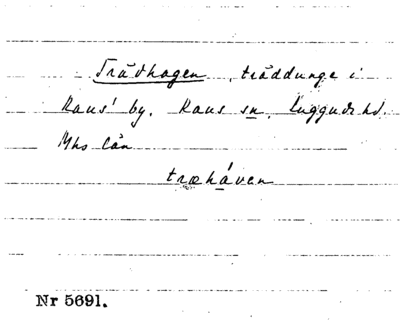 Trädhagen, träddunge i
Raus' by. Raus sn, Luggude hd.
Mhs län
træháven
Nr 5691.